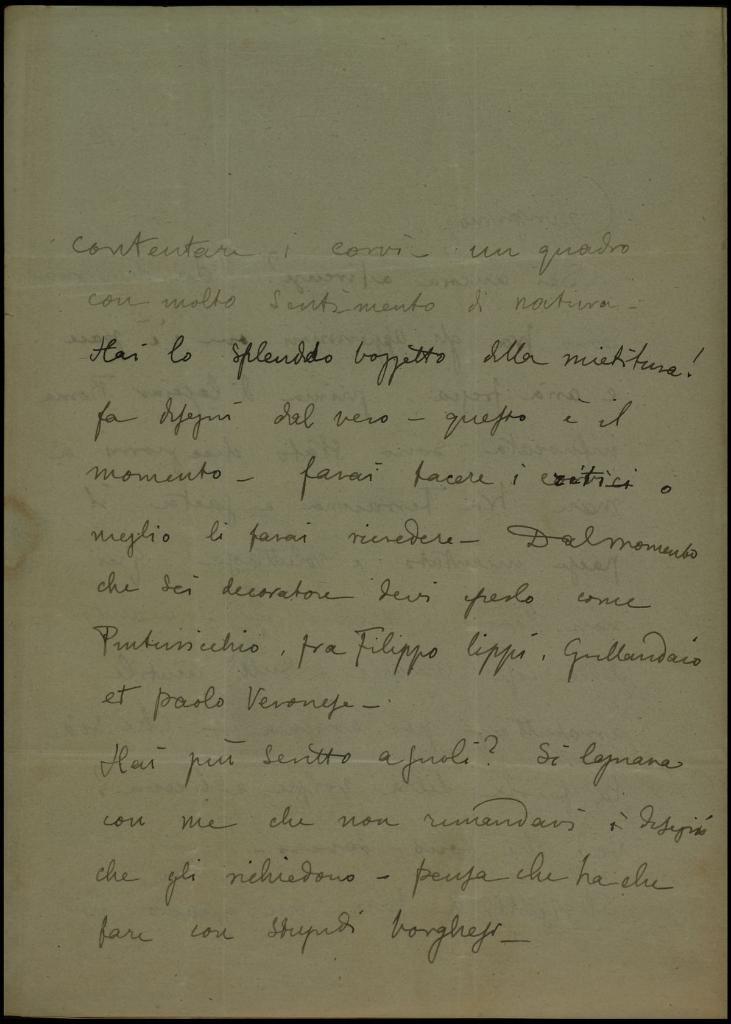 contentare i corvi – un quadro
con molto sentimento di natura –
Hai lo splendido bozzetto della mietitura!
fa disegni dal vero – questo è il
momento – farai tacere i critici o
meglio li farai ricredere – Dal momento
che sei decoratore devi esserlo come
Pinturicchio, fra Filippo Lippi, Grillandaio
et Paolo Veronese –
Hai più scritto a Gnoli? Si lagnava
con me che non rimandavi i disegni
che gli richiedono – pensa che ha che
fare con stupidi borghesi –